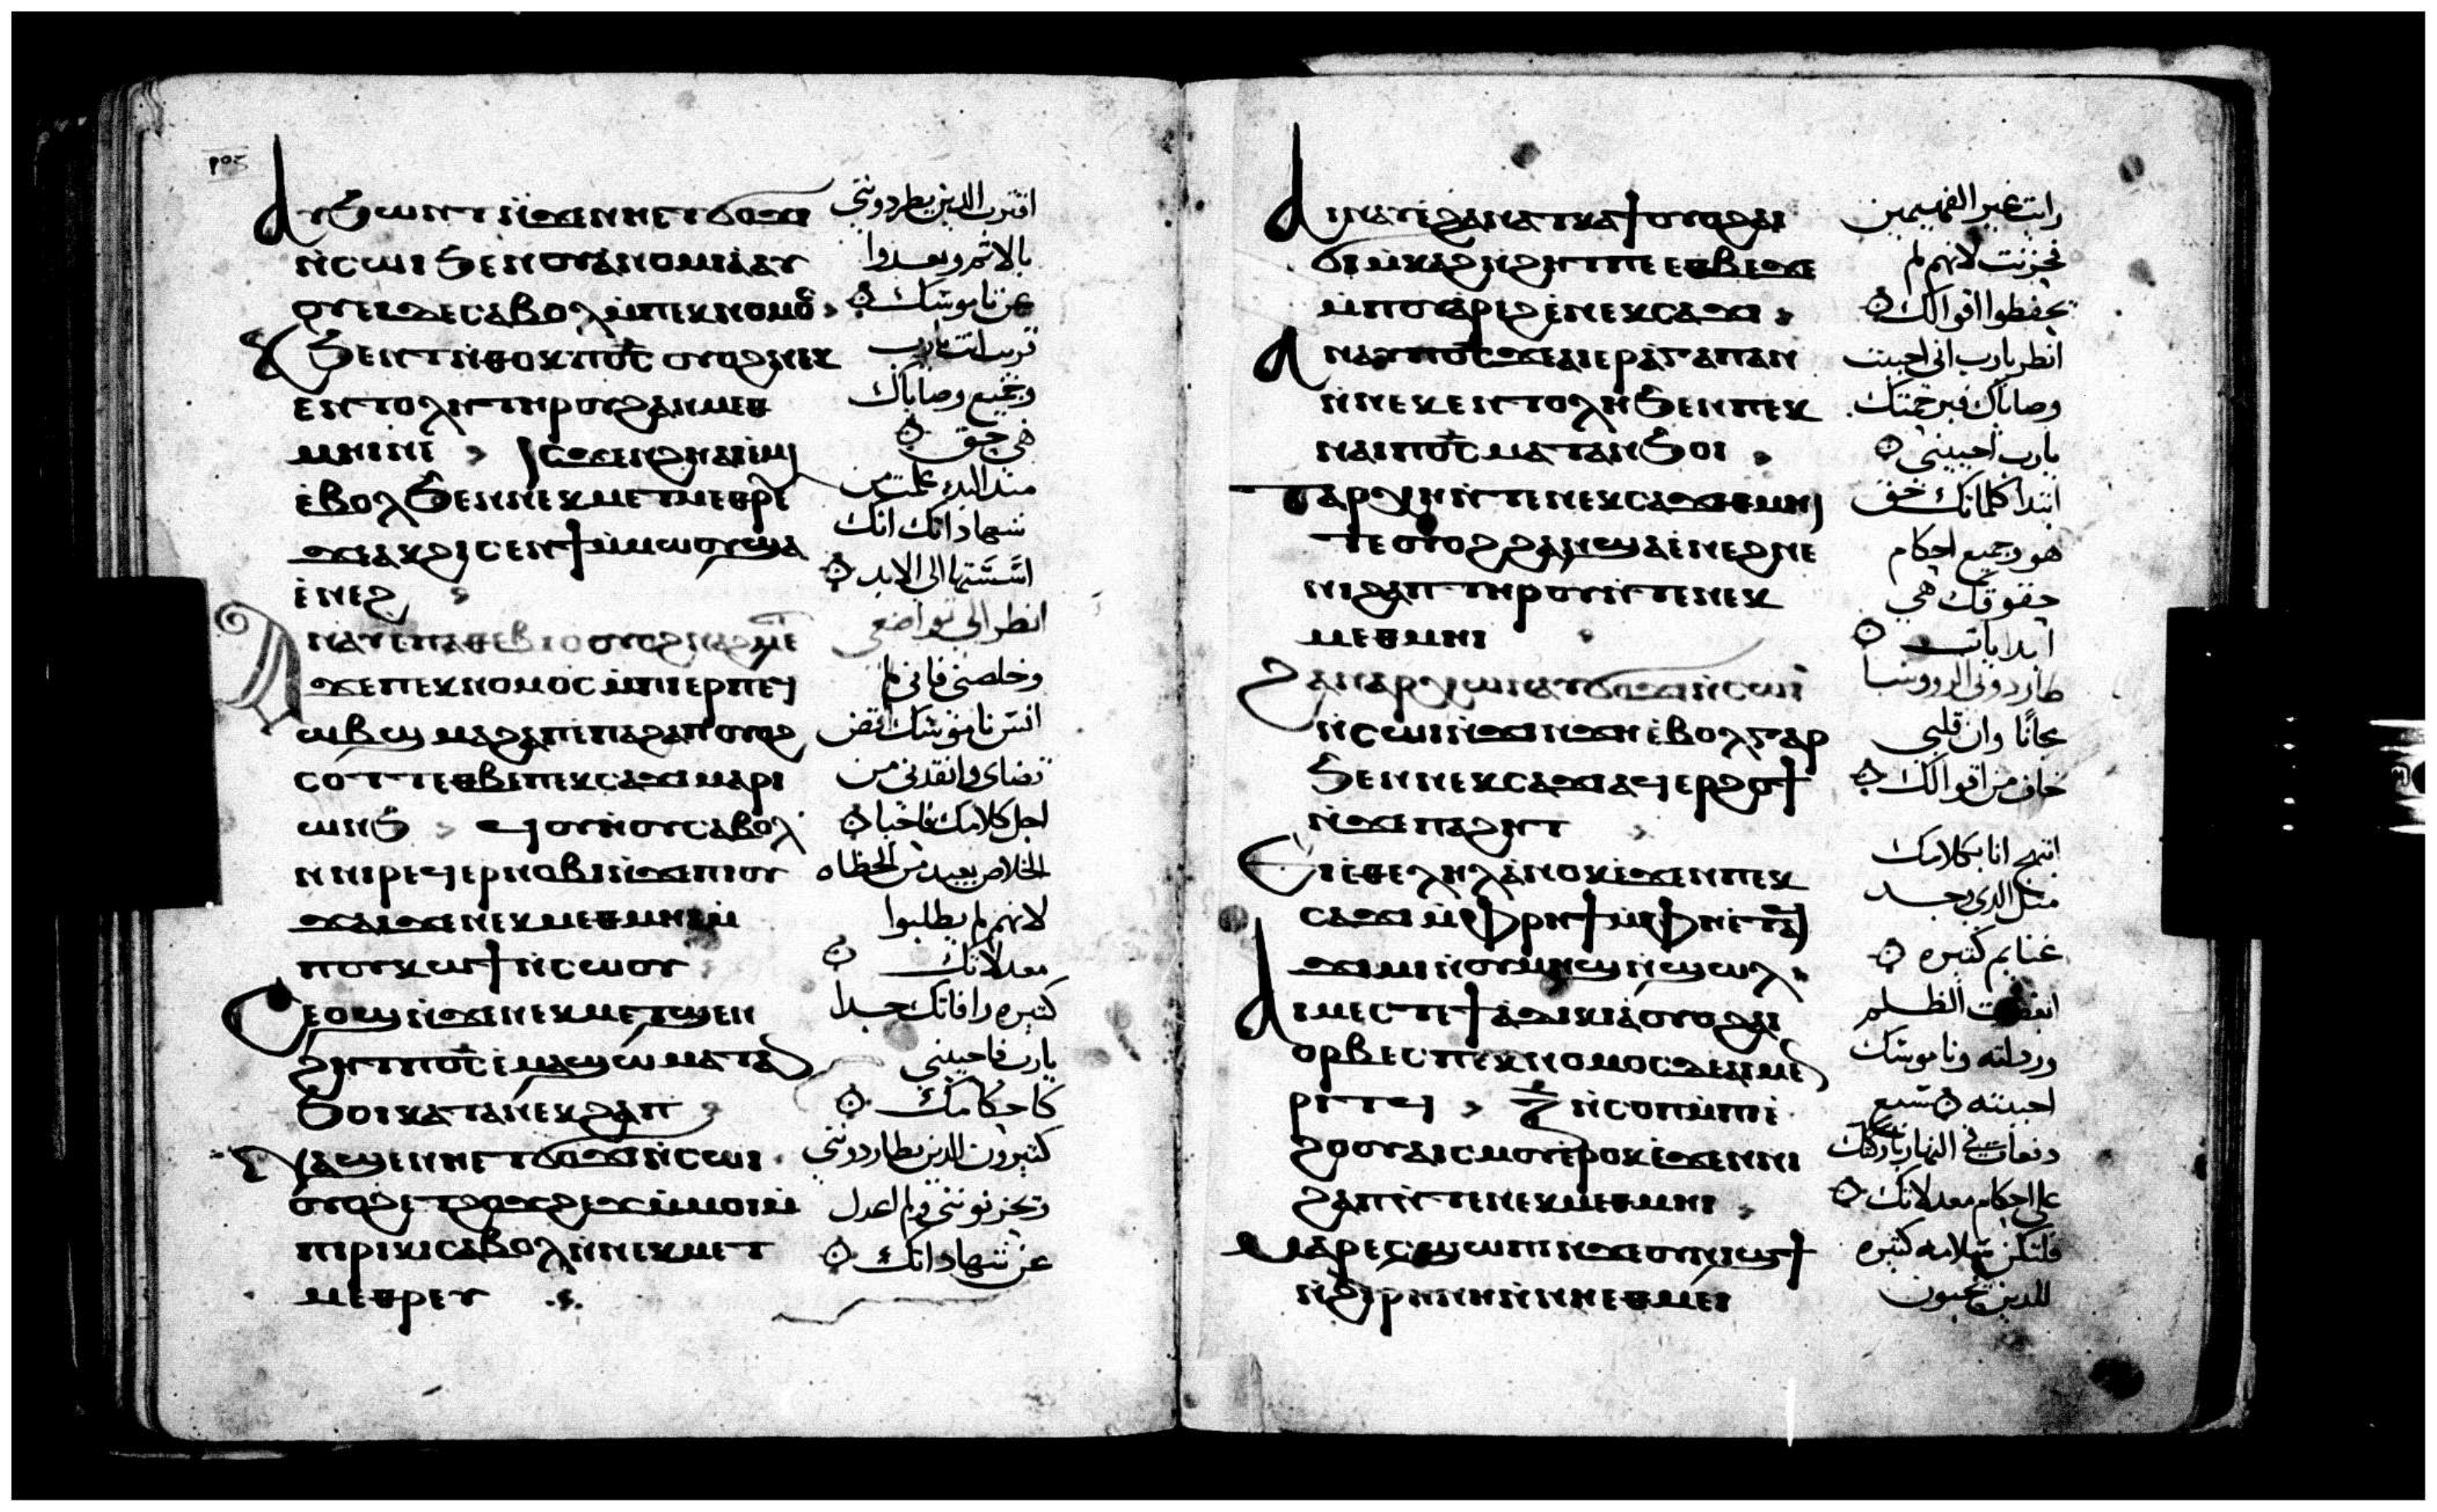 ⲁⲩϧⲱⲛⲧ ⲛ̀ϫⲉⲛⲏⲉⲧϭⲟϫⲓ
ⲛ̀ⲥⲱⲓ ϧⲉⲛⲟⲩⲁ̀ⲛⲟⲙⲓⲁ̀ ⲁⲩ
ⲟⲩⲉⲓ ⲇⲉ ⲥⲁⲃⲟⲗ ⲙ̀ⲡⲉⲕⲛⲟⲙⲟⲥ
ⲕϧⲉⲛⲧ ⲛ̀ⲑⲟⲕ ⲡⲟ̅ⲥ̅ ⲟⲩⲟϩ ⲛⲉⲕ
ⲉⲛⲧⲟⲗⲏ ⲧⲏⲣⲟⲩ ϩⲁⲛⲙⲉⲑ
ⲙⲏⲓ ⲛⲉ ⲓⲥϫⲉⲛ ϩⲏ ⲁⲓⲉ̀ⲙⲓ
ⲉ̀ⲃⲟⲗ ϧⲉⲛⲛⲉⲕⲙⲉⲧⲙⲉⲑⲣⲉ
ϫⲉ ⲁⲕϩⲓⲥⲉⲛϯ ⲙ̀ⲙⲱⲟⲩ ϣⲁ
ⲉ̀ⲛⲉϩ
ⲁⲛⲁⲩ ⲉⲡⲁⲑⲉⲃⲓⲟ ⲟⲩⲟϩ ⲛⲁϩⲙⲉⲧ
ϫⲉ ⲡⲉⲕⲛⲟⲙⲟⲥ ⲙ̀ⲡⲓⲉⲣⲡⲉϥ
ⲱⲃϣ ⲙⲁϩⲁⲡ ⲉ̀ⲡⲁϩⲁⲡ ⲟⲩⲟϩ
ⲥⲟⲧⲧ ⲉⲑⲃⲉ ⲡⲉⲕⲥⲁϫⲓ ⲙⲁⲣⲓ
ⲱⲛϧ ϥⲟⲩⲏⲟⲩ ⲥⲁⲃⲟⲗ
ⲛⲛⲓⲣⲉϥⲉⲣⲛⲟⲃⲓ ⲛ̀ϫⲉ ⲡⲓⲟⲩ
ϫⲁⲓ ϫⲉ ⲛⲉⲕⲙⲉⲑⲙⲏⲓ ⲙ̀
ⲡⲟⲩⲕⲱϯ ⲛ̀ⲥⲱⲟⲩ
ⲥⲉⲟϣ ⲛ̀ϫⲉ ⲛⲉⲕⲙⲉⲧϣⲉⲛ
ϩⲏⲧ ⲡⲟ̅ⲥ̅ ⲉ̀ⲙⲁϣⲱ ⲙⲁⲧⲁⲛ
ϧⲟⲓ ⲕⲁⲧⲁ ⲛⲉⲕϩⲁⲡ
ⲛⲁϣⲉ ⲛⲏⲉⲧϭⲟϫⲓ ⲛ̀ⲥⲱⲓ
ⲟⲩⲟϩ ⲉⲧϩⲟϫϩⲉϫ ⲙ̀ⲙⲟⲓ ⲙ̀
ⲡⲓⲣⲓⲕⲓ ⲥⲁⲃⲟⲗ ⲛ̀ⲛⲉⲕⲙⲉⲧ
ⲙⲉⲑⲣⲉⲩ
اقترب الدين يطردونني
بالاثم وبعدوا
عن ناموسك
قريب انت يارب
وجميع وصاياك
هي حق
مند البدء علمت من
شهاداتك انك
اسستها الى الابد
انظر الي تواضعي
وخلصني فاني لم
انس ناموسك اقض
قضاي وانقدني من
اجل كلامك فاحيا
الخلاص بعيد من الخطاه
لانهم لم يطلبوا
معدلاتك
كتيره رافاتك جدا
يارب فاحييني
كاحكامك
كتيرون الدين يطاردونني
ويحزنونني ولم اعدل
عن شهاداتك
ⲁⲓⲛⲁⲩ ⲉ̀ϩⲁⲛⲁⲧⲕⲁϯ ⲟⲩⲟϩ ⲁⲓ
ϭⲓⲙ̀ⲕⲁϩ ⲛ̀ϩⲏⲧ ⲡⲉ ⲉⲑⲃⲉ ϫⲉ
ⲙ̀ⲡⲟⲩⲁ̀ⲣⲉϩ ⲉ̀ⲛⲉⲕⲥⲁϫⲓ
ⲁⲛⲁⲩ ⲡⲟ̅ⲥ̅ ϫⲉ ⲁⲓⲉⲣⲁ̀ⲅⲁⲡⲁⲛ
ⲛ̀ⲛⲉⲕⲉⲛⲧⲟⲗⲏ ϧⲉⲛ ⲡⲉⲕ
ⲛⲁⲓ ⲡⲟ̅ⲥ̅ ⲙⲁⲧⲁⲛϧⲟⲓ
ⲧⲁⲣⲭⲏ ⲛ̀ⲧⲉ ⲛⲉⲕⲥⲁϫⲓ ⲑⲙⲏⲓ
ⲧⲉ ⲟⲩⲟϩ ϩⲁⲛϣⲁⲉ̀ⲛⲉϩ ⲛⲉ
ⲛⲓϩⲁⲡ ⲧⲏⲣⲟⲩ ⲛ̀ⲧⲉ ⲛⲉⲕ
ⲙⲉⲑⲙⲏⲓ
ϩⲁⲛⲁⲣⲭⲱⲛ ⲁⲩϭⲟϫⲓ ⲛ̀ⲥⲱⲓ
ⲛ̀ⲥⲱⲓ ⲛ̀ϫⲓⲛϫⲏ ⲉ̀ⲃⲟⲗ ⲅⲁⲣ
ϧⲉⲛ ⲛⲉⲕⲥⲁϫⲓ ⲁϥⲉⲣϩⲟϯ
ⲛ̀ϫⲉ ⲡⲁϩⲏⲧ
ⲉⲓⲉ̀ⲑⲉⲗⲏⲗ ⲁ̀ⲛⲟⲕ ⲉ̀ϫⲉⲛ ⲡⲉⲕ
ⲥⲁϫⲓ ⲙ̀ⲫⲣⲏϯ ⲙ̀ⲫⲏⲉⲧⲁϥ
ϫⲓⲙⲓ ⲛ̀ⲟⲩⲙⲏϣ ⲛ̀ϣⲱⲗ
ⲁⲓⲙⲉⲥⲧⲉ ϯⲁ̀ⲇⲓⲕⲓⲁ̀ ⲟⲩⲟϩ ⲁⲓ
ⲟⲣⲃⲉⲥ ⲡⲉⲕⲛⲟⲙⲟⲥ ⲇⲉ ⲁⲓⲙⲉⲛ
ⲣⲓⲧϥ ⲍ̅ ⲛ̀ⲥⲟⲡ ⲙ̀ⲡⲓ
ⲉ̀ϩⲟⲟⲩ ⲁⲓⲥⲙⲟⲩ ⲉ̀ⲣⲟⲕ ⲉ̀ϫⲉⲛ ⲛⲓ
ϩⲁⲡ ⲛ̀ⲧⲉ ⲛⲉⲕⲙⲉⲑⲙⲏⲓ
ⲙⲁⲣⲉⲥϣⲱⲡⲓ ⲛ̀ϫⲉ ⲟⲩⲛⲓϣϯ
ⲛ̀ϩⲓⲣⲏⲛⲏ ⲛ̀ⲛⲏⲉⲑⲙⲉⲓ
رايت غير الفهيمين
فحزنت لانهم لم
يحفظوا اقوالك
انظر يارب اني احببت
وصاياك فبرحمتك
يارب احييني
ابتدا كلماتك حق
هو وجميع احكام
حقوقك هي
ابديات
طاردوني الرووسا
مجانا وان قلبي
خاف من اقوالك
ابتهج انا بكلامك
متل الدي وجد
غنايم كتيره
ابغضت الظلم
وردلته وناموسك
احببته سبع
دفعات في النهار باركتك
على احكام معدلاتك
فلتكن سلامه كتيره
للدين يحبون